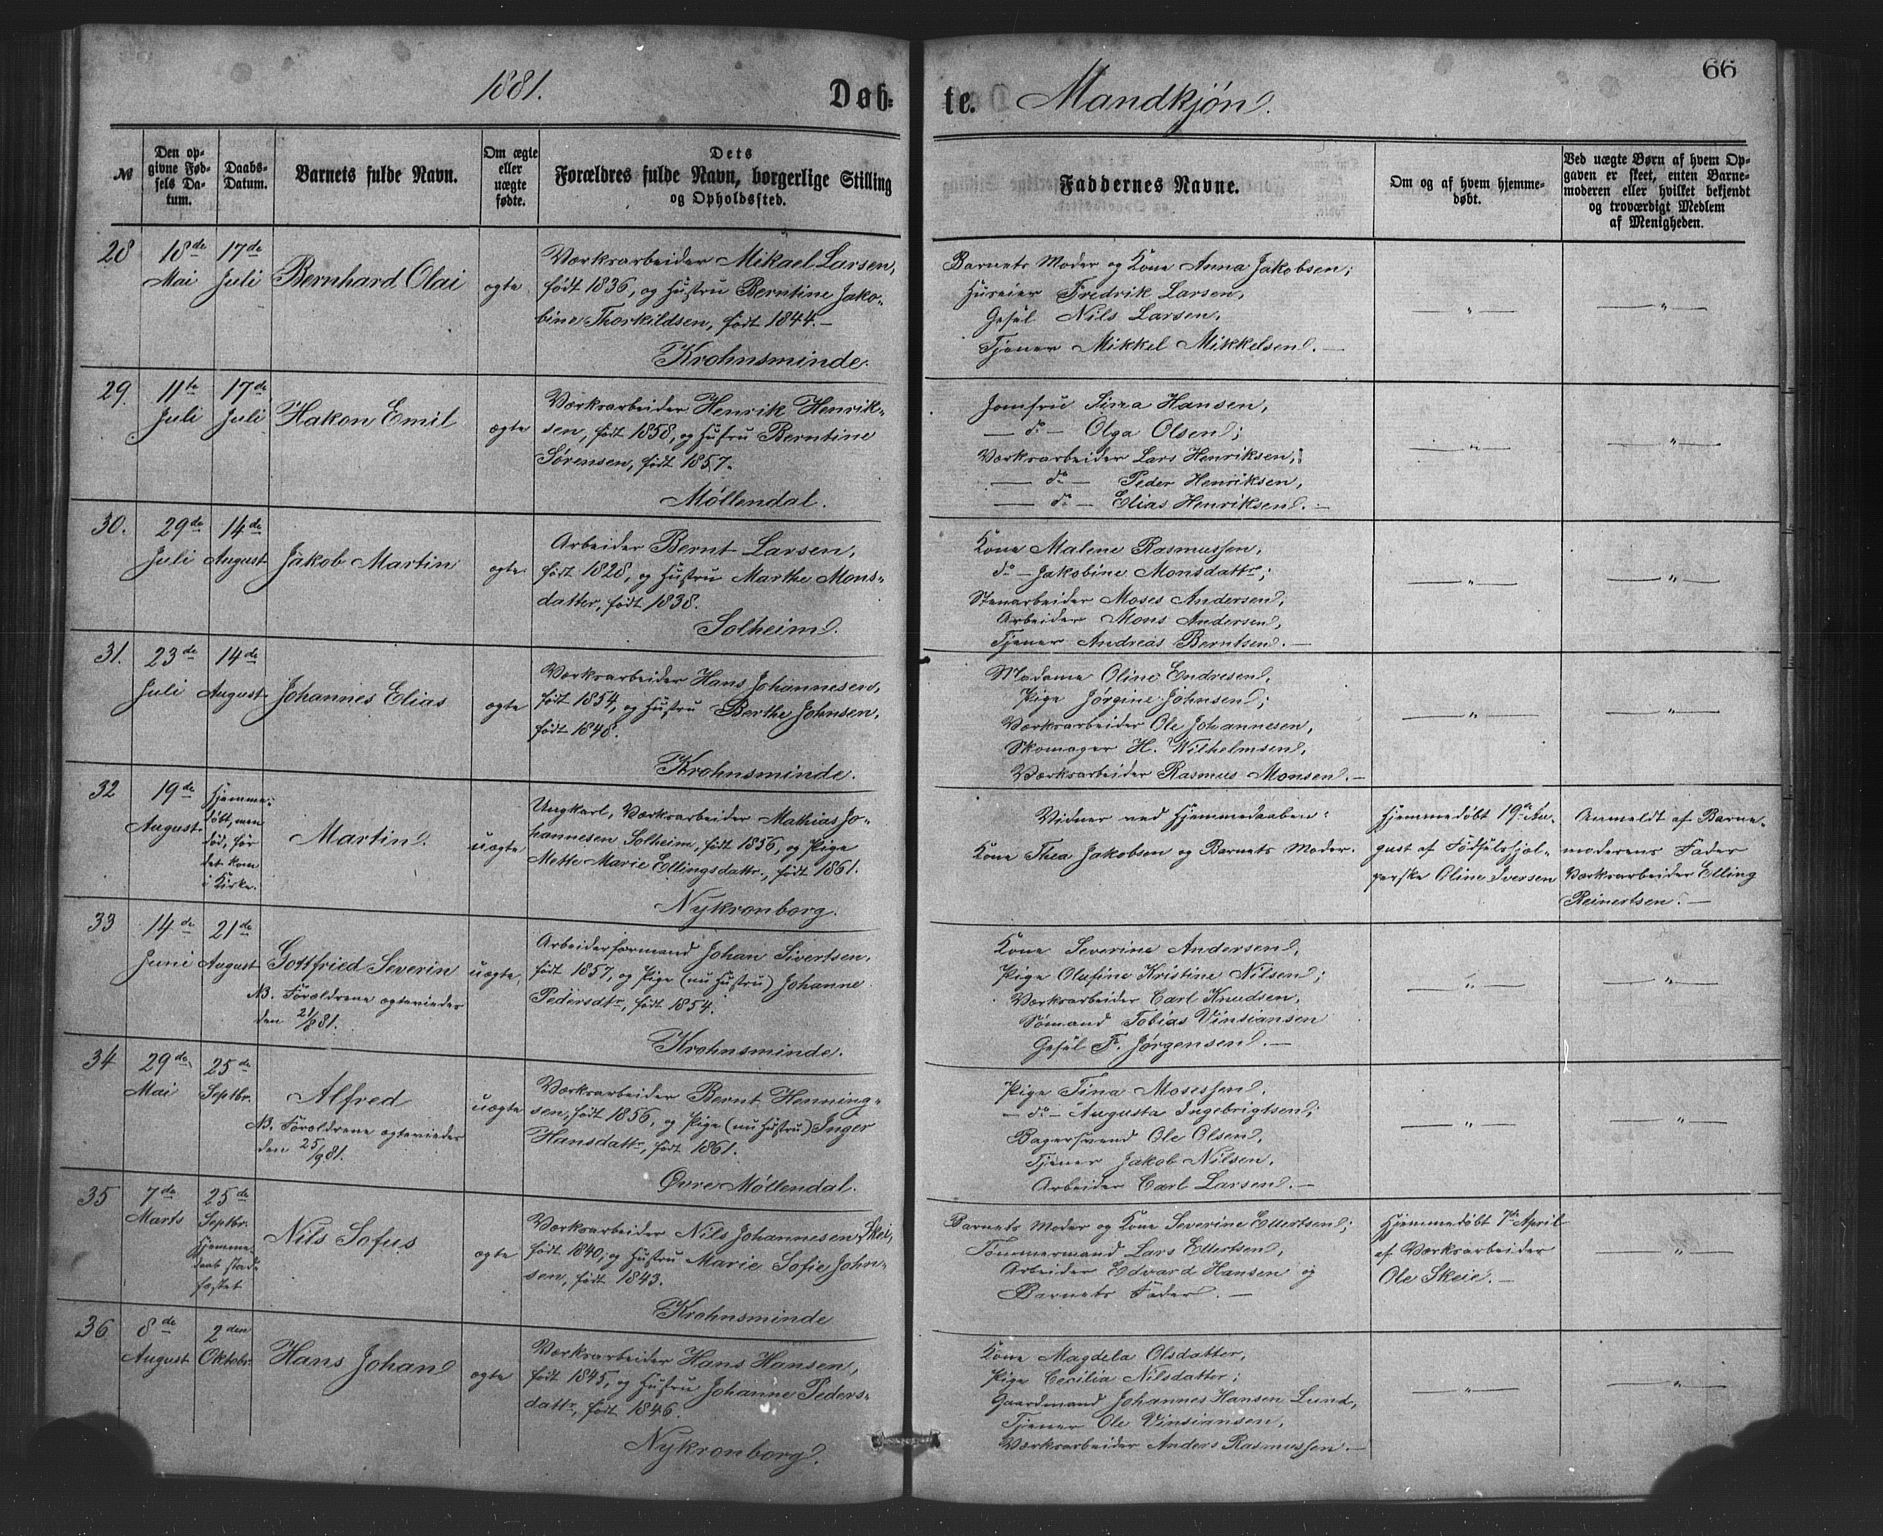 1881.
Døb=
te. Mandkjøn.
66
№
Den op-
givne Fød-
sels Da-
tum.
Daabs-
Datum.
Barnets fulde Navn.
Om ægte
eller
uægte
fødte.
Dets
Forældres fulde Navn, borgerlige Stilling
og Opholdssted.
Faddernes Navne.
Om og af hvem hjemme-
døbt.
Ved uægte Børn af hvem Op-
gaven er skeet, enten Barne-
moderen eller hvilket bekjendt
og troværdigt Medlem
af Menigheden.
28
18de
Mai
17de
Juli
Bernhard Olai
ægte
Værksarbeider Mikael Larsen,
født 1836, og Hustru Berntine Jako-
bine Thorkildsen, født 1844.-
Krohnsminde.
Barnets Moder og Kone Anna Jakobsen;
Huseier Fredrik Larsen,
Gesel Nils Larsen,
Tjener Mikkel Mikkelsen. —
— " —
— " —
29.
11te
Juli
17de
Juli
Hakon Emil
ægte
Værksarbeider Henrik Henrik-
sen, født 1858, og Hustru Berntine
Sørensen, født 1857.
Møllendal.
Jomfru Sina Hansen,
— do — Olga Olsen;
Værksarbeider Lars Henriksen,
— do — Peder Henriksen,
— do — Elias Henriksen. —
— " —
— " —
30.
29de
Juli
14de
August
Jakob Martin
ægte.
Arbeider Bernt Larsen,
født 1828, og Hustru Marthe Mons-
datter, født 1838.
Solheim.
Kone Malene Rasmussen,
do — Jakobine Monsdattr;
Stenarbeider Moses Andersen,
Arbeider Mons Andersen,
Tjener Andreas Berntsen. —
— " —
— " —
31.
23de
Juli
14de
August
Johannes Elias
ægte
Værksarbeider Hans Johannesen,
født 1854, og Hustru Berthe Johnsen,
født 1848.
Krohnsminde.
Madame Oline Endresen,
Pige Jørgine Johnsen;
Værksarbeider Ole Johannesen,
Skomager H. Wilhelmsen,
Værksarbeider Rasmus Monsen. —
— " —
— " —
32
19de
August
Hjemme-
døbt, men
død, før
det kom
i Kirke.
Martin.
uægte
Ungkarl, Værksarbeider Mathias Jo-
hannesen Solheim, født 1856, og Pige
Mette Marie Ellingsdattr., født 1861.
Nykronborg.
Vidner ved Hjemmedaaben:
Kone Thea Jakobsen og Barnets Moder.
Hjemmedøbt 19de Au-
gust af Fødselshjæl-
perske Oline Iversen
Anmeldt af Barne-
moderens Fader
Værksarbeider Elling
Reinertsen. —
33
14de
Juni
21de
August
Gottfried Severin
NB. Forældrene ægteviedes
den 21/8 81.
uægte
Arbeiderformand Johan Sivertsen,
født 1857, og Pige (nu Hustru) Johanne
Pedersdtr, født 1854.
Krohnsminde.
Kone Severine Andersen,
Pige Olufine Kristine Nilsen;
Værksarbeider Carl Knudsen,
Sømand Tobias Vinsiansen
Gesel F. Jørgensen. —
— " —
— " —
34
29de
Mai
25de
Septbr.
Alfred
NB. Forældrene ægteviedes
den 25/9 81.
uægte
Værksarbeider Bernt Henning-
sen, født 1856, og Pige (nu Hustru) Inger
Hansdattr, født 1861.
Øvre Møllendal.
Pige Tina Mosessen,
— do — Augusta Ingebrigtsen;
Bagersvend Ole Olsen,
Tjener Jakob Nilsen,
Arbeider Carl Larsen. —
— " —
— " —
35
7de
Marts
25de
Septbr.
Hjemme-
daab stad-
fæstet
Nils Sofus
ægte
Værksarbeider Nils Johannesen Skei,
født 1840, og Hustru Marie Sofie John-
sen, født 1843.
Krohnsminde
Barnets Moder og Kone Severine Ellertsen;
Tømmermand Lars Ellertsen,
Arbeider Edvard Hansen og
Barnets Fader. —
Hjemmedøbt 7de April
af Værksarbeider
Ole Skeie. —
— " —
36
8de
August
2den
Oktobr.
Hans Johan
ægte
Værksarbeider Hans Hansen,
født 1845, og Hustru Johanne Peders-
dattr, født 1846.
Nykronborg.
Kone Magdela Olsdatter,
Pige Cecilia Nilsdatter;
Gaardmand Johannes Hansen Lund,
Tjener Ole Vinsiansen,
Værksarbeider Anders Rasmussen —
— " —
— " —